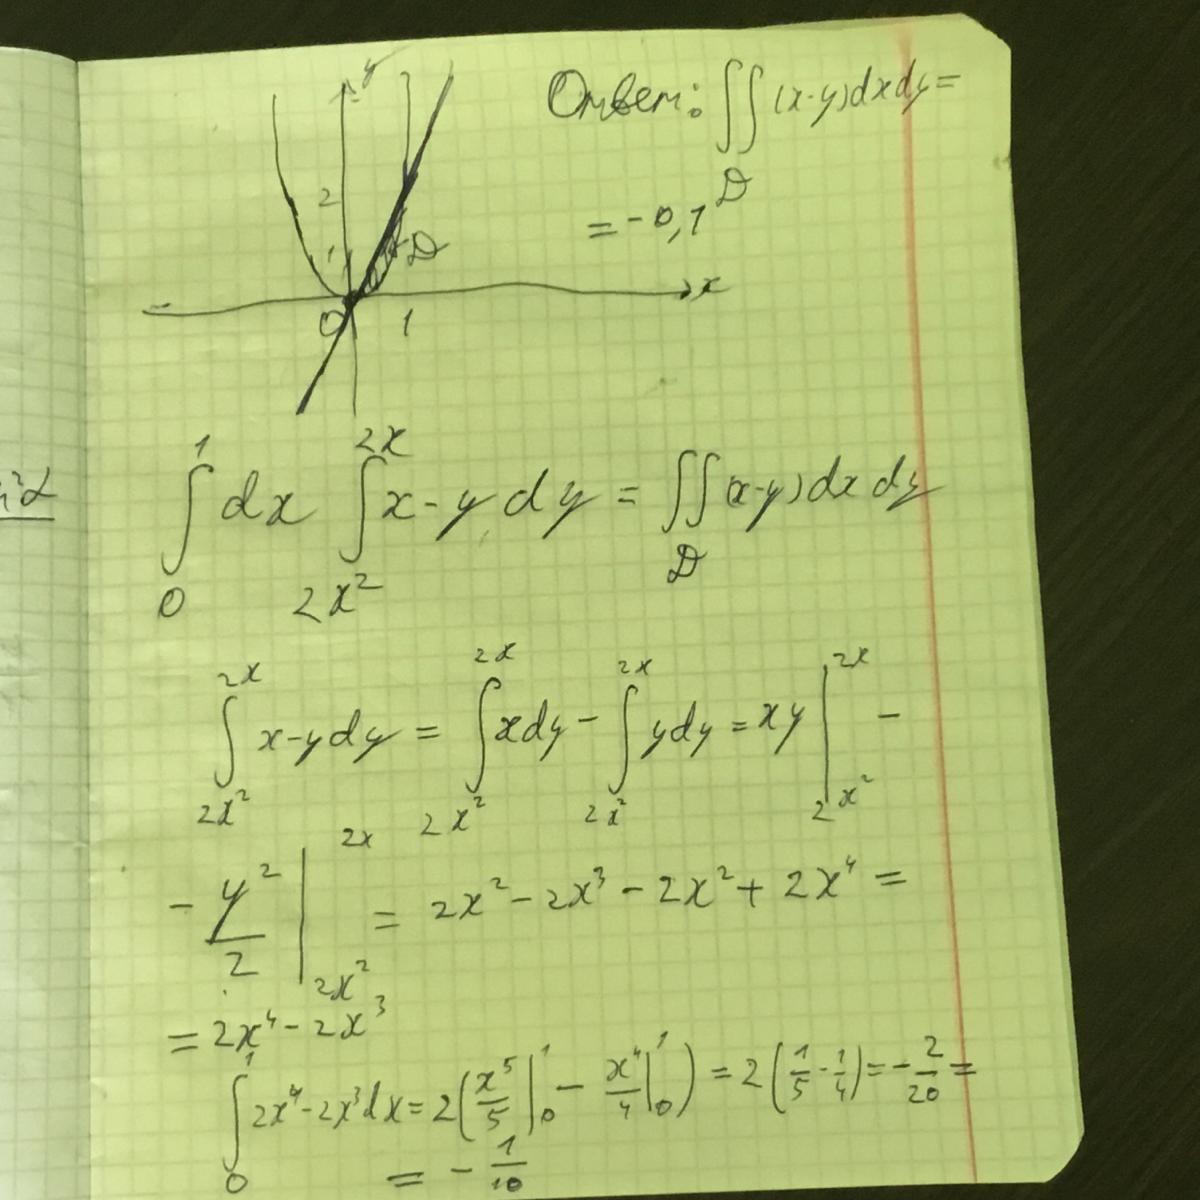 y
Ответ: ∬ (x-y)dxdy=
D
= -0,1
2
1
D
x
0
1
∫₀¹ dx ∫_{2x²}^{2x} x-y dy = ∬_D (x-y)dx dy
∫_{2x²}^{2x} x-y dy = ∫_{2x²}^{2x} x dy - ∫_{2x²}^{2x} y dy = xy |_{2x²}^{2x} -
- y²/2 |_{2x²}^{2x} = 2x² - 2x³ - 2x² + 2x⁴ =
= 2x⁴ - 2x³
∫₀¹ 2x⁴-2x³dx = 2(x⁵/5 |₀¹ - x⁴/4 |₀¹) = 2(1/5 - 1/4) = -2/20 =
= -1/10